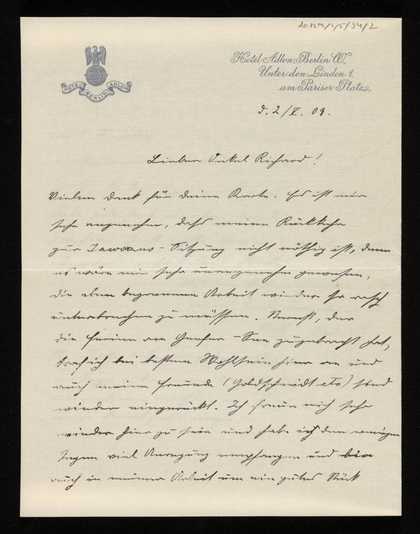 Hotel Adlon Berlin W.
Unter den Linden 1.
am Pariser Platz.
HOTEL ADLON
BERLIN
d. 2/V. 09.
Lieber Onkel Richard!
Vielen Dank für Deine Karte. Es ist mir
sehr angenehm, dass meine Rückkehr
zur Sitzung nicht nötig ist, denn
es wäre mir sehr unangenehm gewesen,
die eben begonnene Arbeit wieder so rasch
unterbrechen zu müssen. Nernst, der
die Ferien am Genfer-See zugebracht hat,
traf ich bei bestem Wohlsein hier an und
auch meine Freunde (Goldschmidt etc) sind
wieder eingerückt. Ich freue mich sehr
wieder hier zu sein und habe in den wenigen
Tagen viel Anregung empfangen und bin
auch in meiner Arbeit um ein gutes Stück